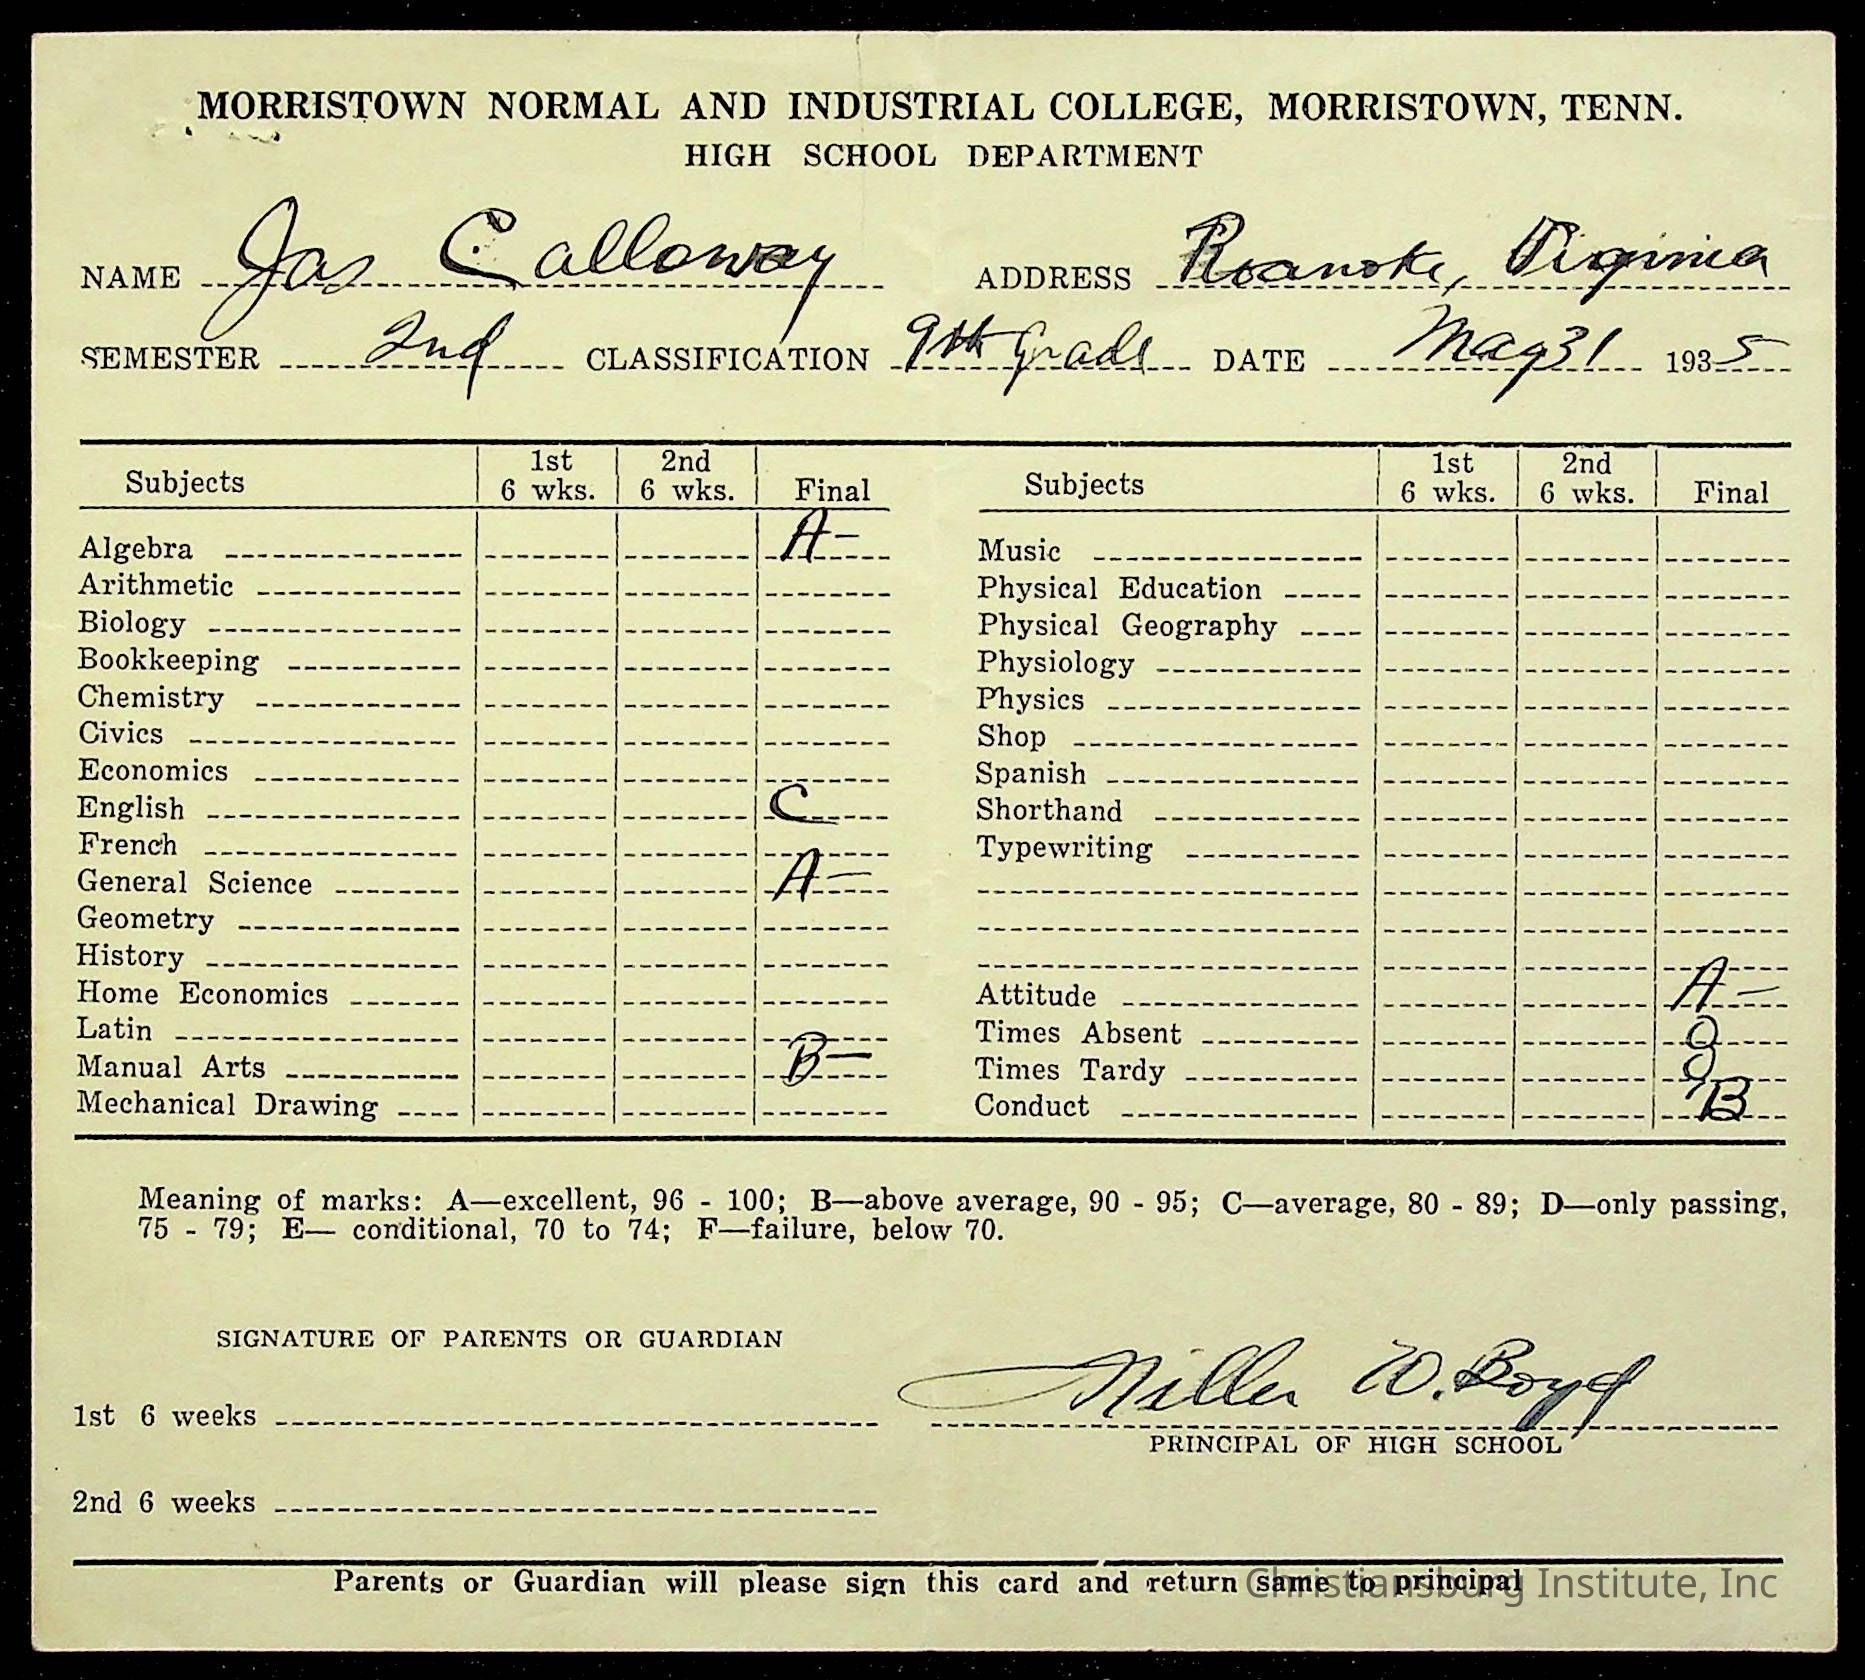 MORRISTOWN NORMAL AND INDUSTRIAL COLLEGE, MORRISTOWN, TENN.
HIGH SCHOOL DEPARTMENT
NAME Jas Calloway ADDRESS Roanoke, Virginia
SEMESTER 2nd CLASSIFICATION 9th Grade DATE May 31 1935
Subjects 1st 6 wks. 2nd 6 wks. Final
Algebra A-
Arithmetic
Biology
Bookkeeping
Chemistry
Civics
Economics
English C
French
General Science A-
Geometry
History
Home Economics
Latin
Manual Arts B-
Mechanical Drawing
Subjects 1st 6 wks. 2nd 6 wks. Final
Music
Physical Education
Physical Geography
Physiology
Physics
Shop
Spanish
Shorthand
Typewriting
Attitude A-
Times Absent 0
Times Tardy 0
Conduct B
Meaning of marks: A—excellent, 96 - 100; B—above average, 90 - 95; C—average, 80 - 89; D—only passing,
75 - 79; E— conditional, 70 to 74; F—failure, below 70.
SIGNATURE OF PARENTS OR GUARDIAN
Miller W. Boyd
1st 6 weeks
PRINCIPAL OF HIGH SCHOOL
2nd 6 weeks
Parents or Guardian will please sign this card and return same to principal
Christiansburg Institute, Inc